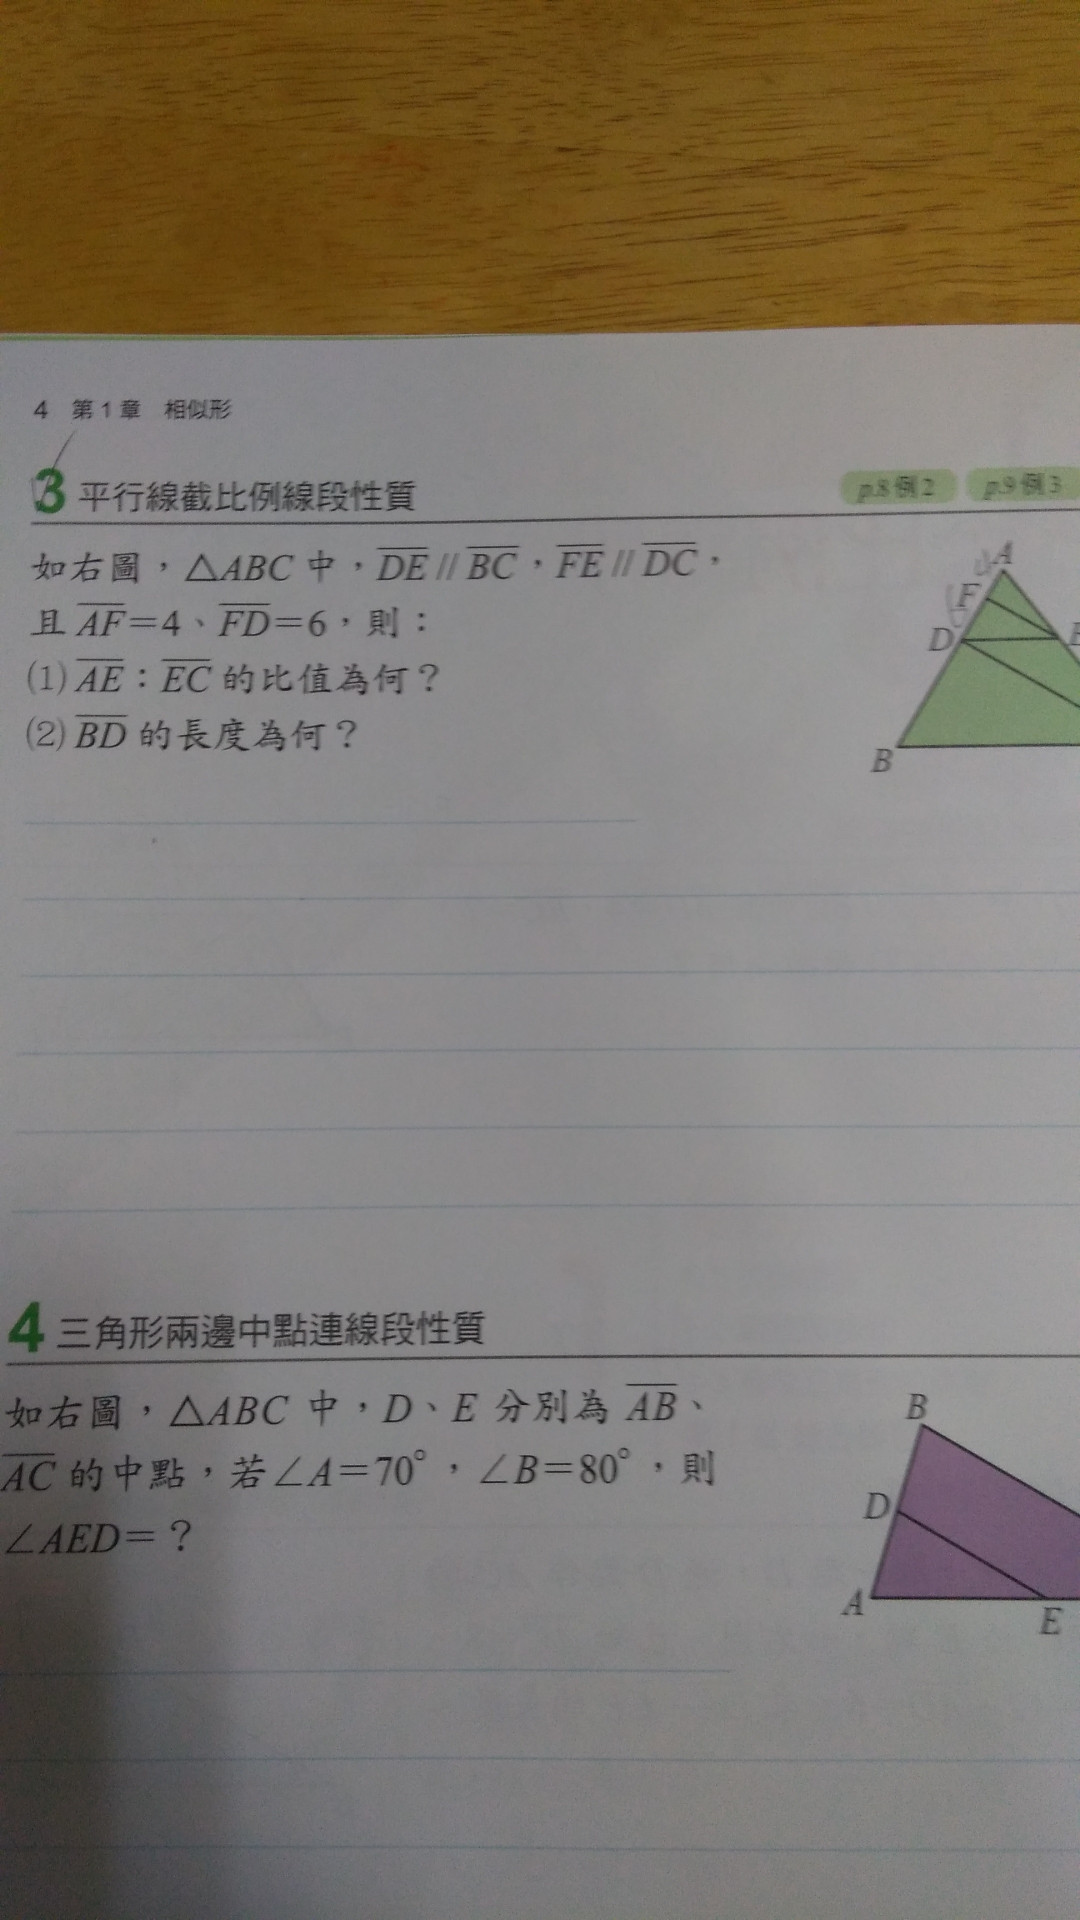 4 第1章 相似形
3 平行線截比例線段性質
p.8例2 p.9例3
如右圖，△ABC 中，DE // BC，FE // DC，
且 AF=4、FD=6，則：
(1) AE：EC 的比值為何？
(2) BD 的長度為何？
A
F
D
E
B
4 三角形兩邊中點連線段性質
如右圖，△ABC 中，D、E 分別為 AB、
AC 的中點，若∠A=70°，∠B=80°，則
∠AED=？
B
D
A
E